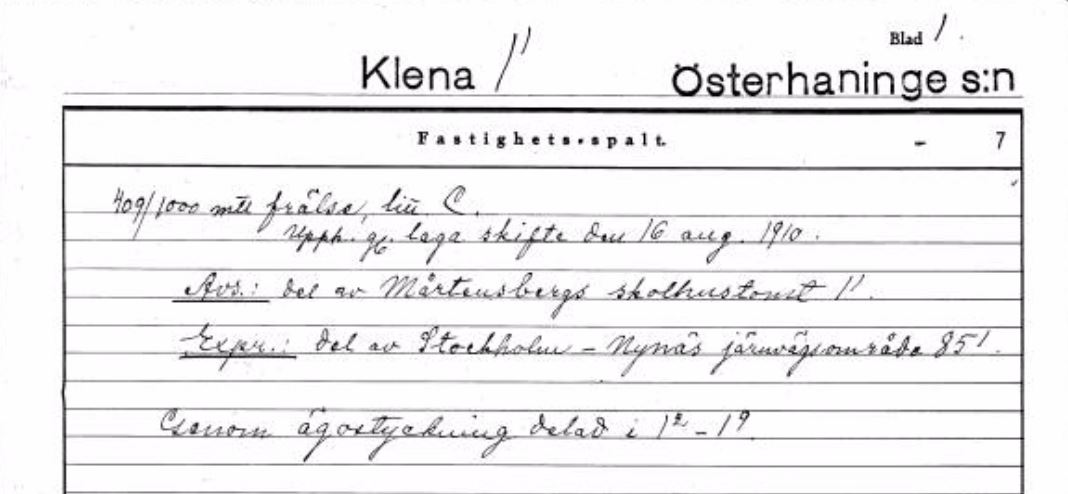 Blad 1.
Klena 1¹ Österhaninge s:n
Fastighets-spalt. - 7
409/1000 mtl frälse, litt C.
Upph. gm. laga skifte den 16 aug. 1910.
Avs.: del av Mårtensbergs skolhustomt 1¹.
Expr.: del av Stockholm – Nynäs järnvägsområde 85¹.
Genom ägostyckning delad i 1² – 1⁹